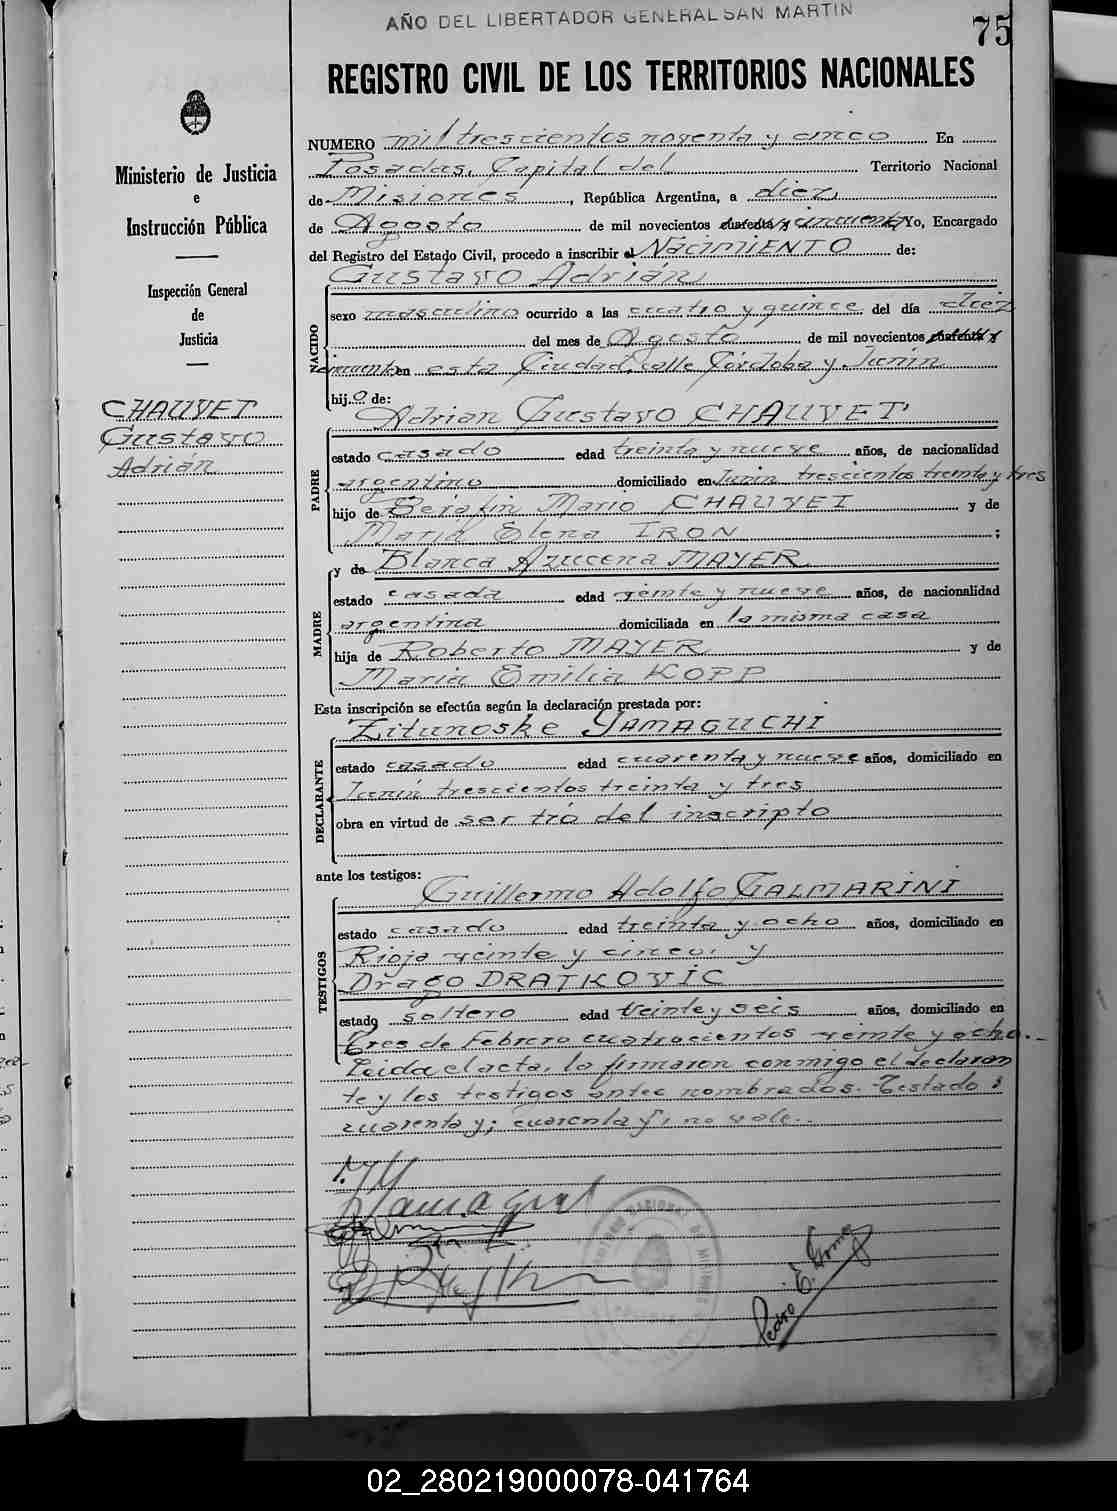 AÑO DEL LIBERTADOR GENERAL SAN MARTIN
75
REGISTRO CIVIL DE LOS TERRITORIOS NACIONALES
Ministerio de Justicia
e
Instrucción Pública
Inspección General
de
Justicia
CHAUVET
Gustavo
Adrián
NUMERO mil trescientos noventa y cinco En
Posadas, Capital del Territorio Nacional
de Misiones, República Argentina, a diez
de Agosto de mil novecientos cuarenta y cincuenta Yo, Encargado
del Registro del Estado Civil, procedo a inscribir el NACIMIENTO de:
Gustavo Adrián
NACIDO
sexo masculino ocurrido a las cuatro y quince del día diez
del mes de Agosto de mil novecientos cuarenta y
cincuenta en esta Ciudad, calle Córdoba y Junín
hijo de:
Adrian Gustavo CHAUVET
PADRE
estado casado edad treinta y nueve años, de nacionalidad
argentino domiciliado en Junín trescientos treinta y tres
hijo de Serafin Mario CHAUVET y de
María Elena IRON ;
y de Blanca Azucena MAYER
MADRE
estado casada edad veinte y nueve años, de nacionalidad
argentina domiciliada en la misma casa
hija de Roberto MAYER y de
Maria Emilia KOPP
Esta inscripción se efectúa según la declaración prestada por:
Zitunoske YAMAGUCHI
DECLARANTE
estado casado edad cuarenta y nueve años, domiciliado en
Junín trescientos treinta y tres
obra en virtud de ser tío del inscripto
ante los testigos:
Guillermo Adolfo GALMARINI
TESTIGOS
estado casado edad treinta y ocho años, domiciliado en
Rioja veinte y cinco, y
Drago DRATKOVIC
estado soltero edad veinte y seis años, domiciliado en
Tres de Febrero cuatrocientos veinte y ocho.-
Leida el acta, la firmaron conmigo el declaran
te y los testigos antes nombrados.- Testado :
cuarenta y; cuarenta y; no vale.-
Pedro E.
02_280219000078-041764